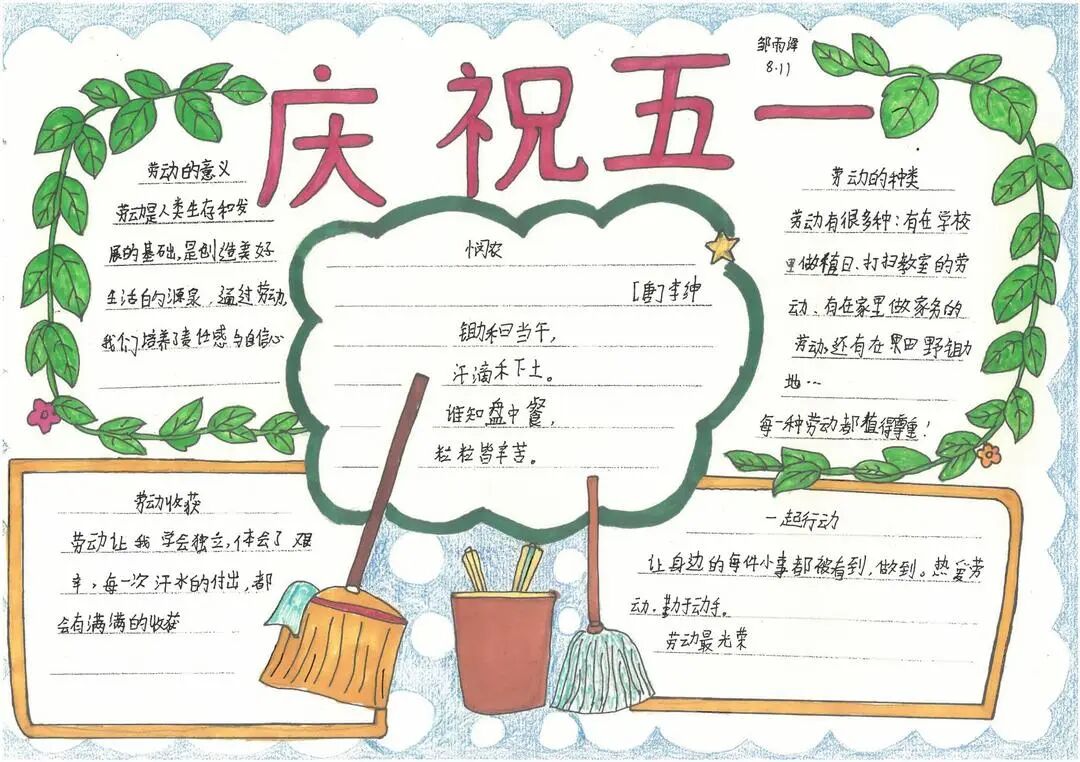 庆祝五一
邹雨泽
8.11
劳动的意义
劳动是人类生存和发
展的基础,是创造美好
生活的源泉,通过劳动,
我们培养了责任感与自信心
悯农
[唐]李绅
锄禾日当午,
汗滴禾下土。
谁知盘中餐,
粒粒皆辛苦。
劳动的种类
劳动有很多种:有在学校
里做值日、打扫教室的劳
动、有在家里做家务的
劳动,还有在果田野锄
地…
每一种劳动都值得尊重!
劳动收获
劳动让我学会独立,体会了艰
辛,每一次汗水的付出,都
会有满满的收获
一起行动
让身边的每件小事都被看到,做到。热爱劳
动.勤于动手。
劳动最光荣